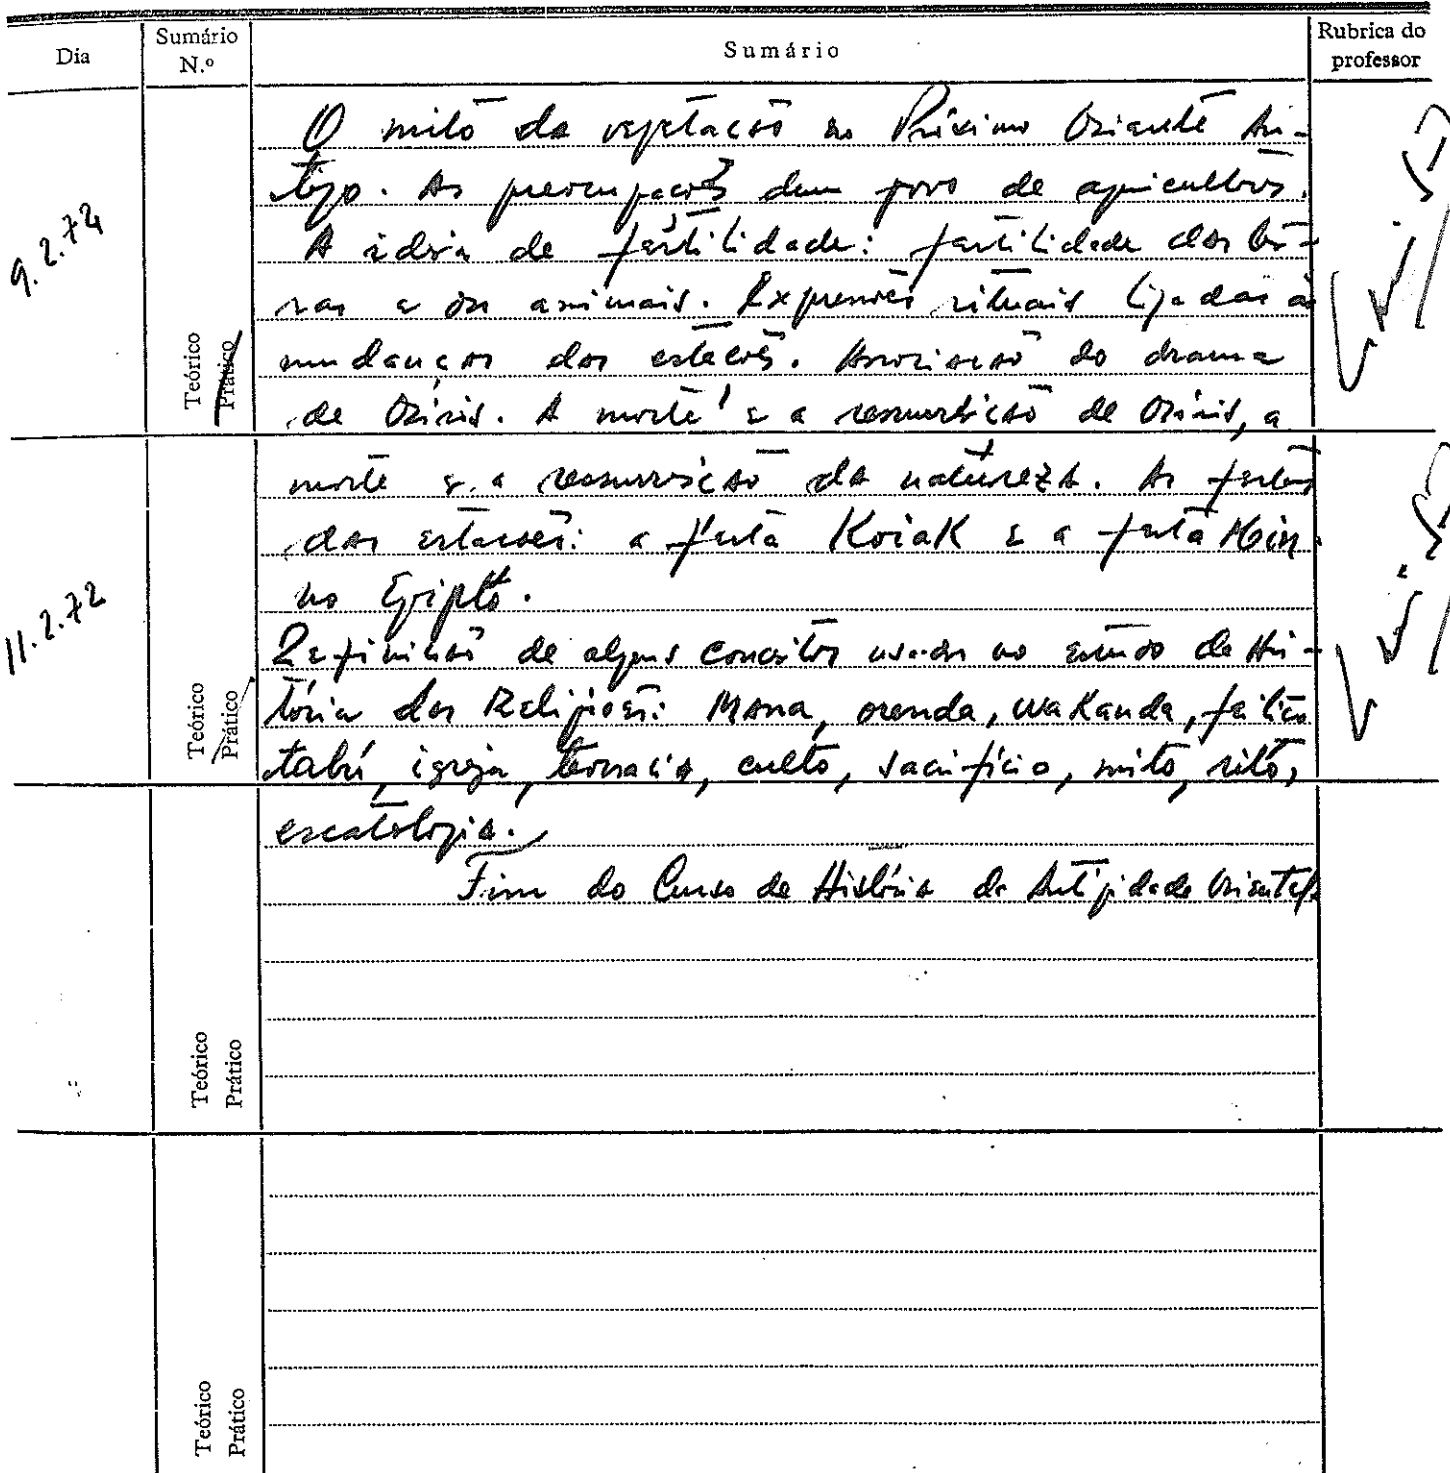 Dia
Sumário N.º
Sumário
Rubrica do professor
9.2.72
Teórico
Prático
O mito da vegetação no Próximo Oriente An-
tigo. As preocupações dum povo de agricultores.
A ideia de fertilidade: fertilidade das ter-
ras e dos animais. Expressões rituais ligadas às
mudanças das estações. Associação do drama
de Osíris. A morte e a ressurreição de Osíris, a
morte e a ressurreição da natureza. As festas
das estações: a festa Koiak e a festa Min
no Egipto.
11.2.72
Teórico
Prático
Definição de alguns conceitos usados no estudo da His-
tória das Religiões: Mana, orenda, wakanda, feitiço
tabú, igreja, teocracia, culto, sacrifício, mito, rito,
escatologia.
Fim do Curso de História da Antiguidade Oriental
Teórico
Prático
Teórico
Prático